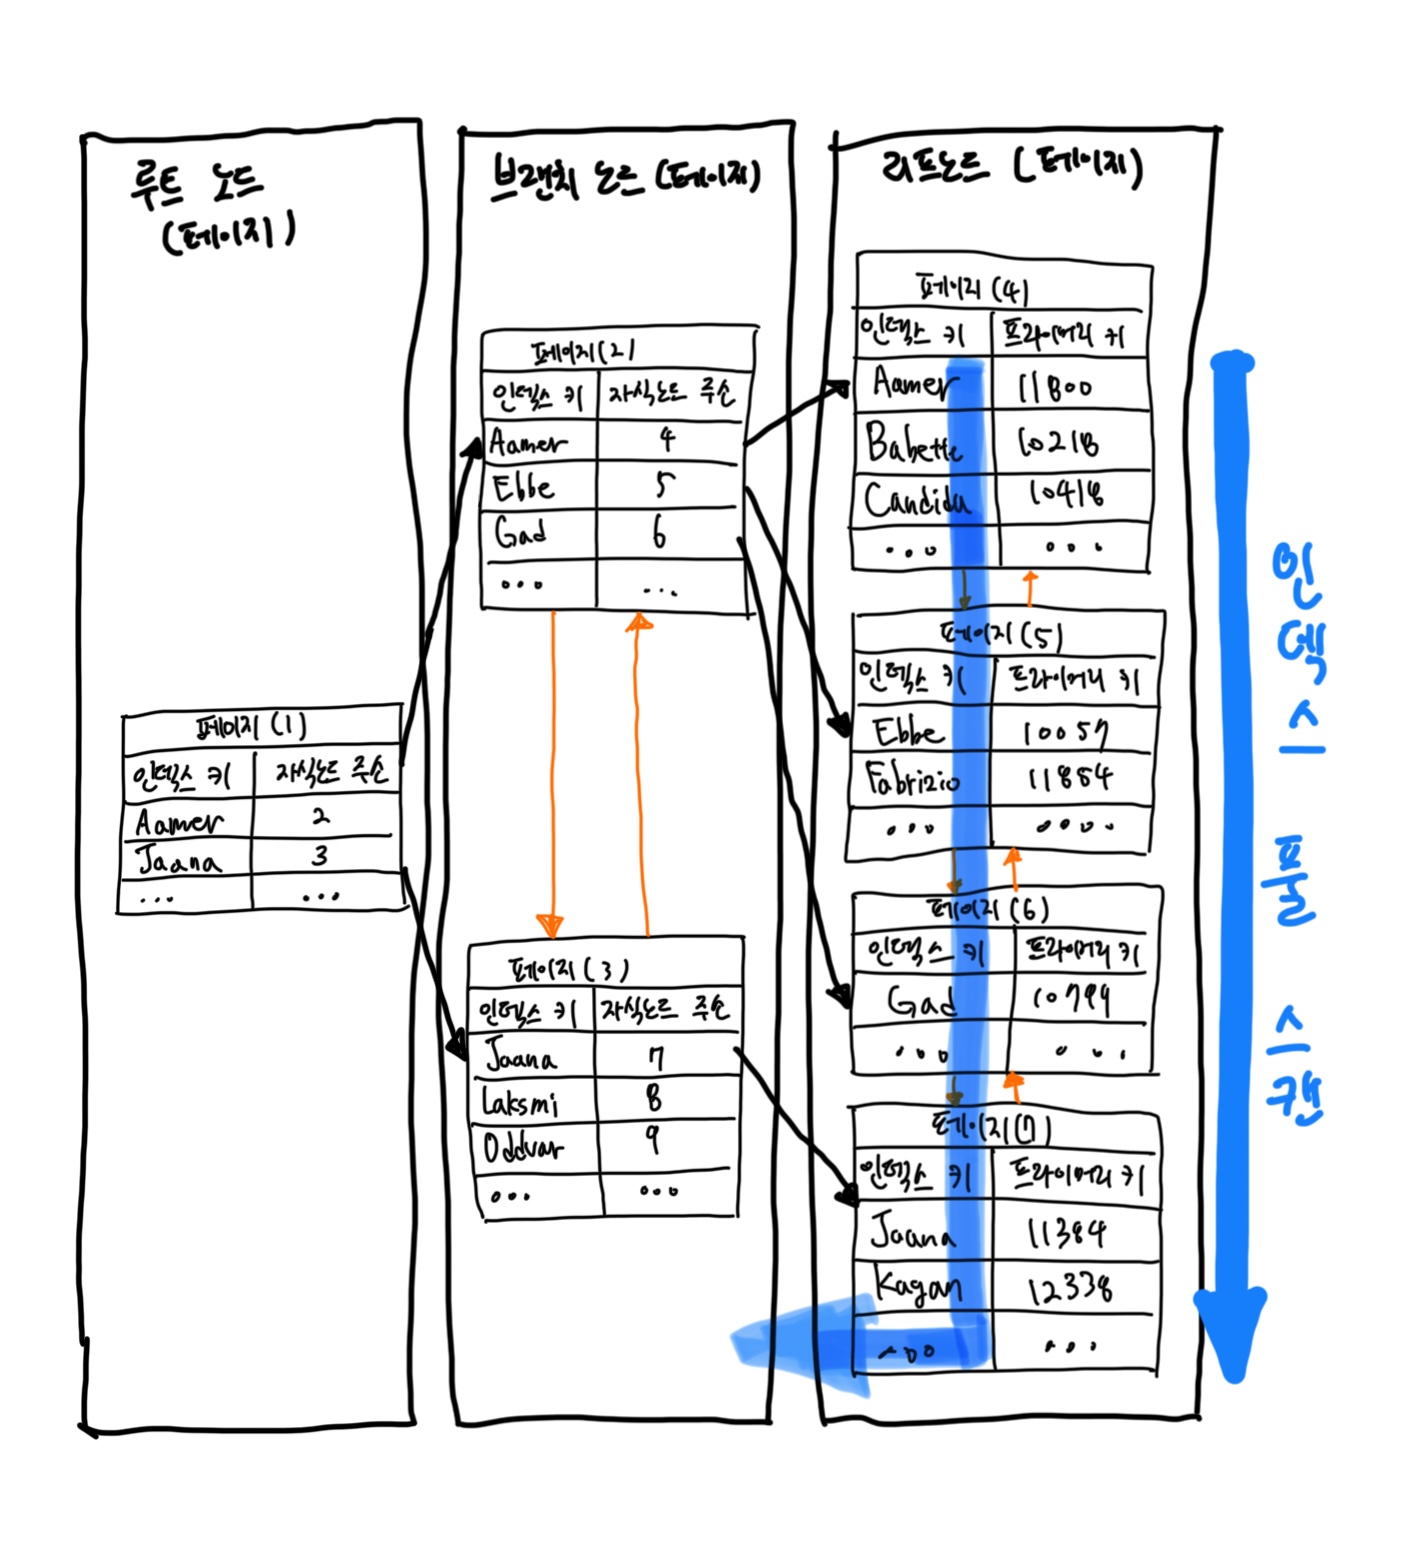 루트 노드
(페이지)
페이지(1)
인덱스 키 자식노드 주소
Aamer 2
Jaana 3
... ...
브랜치 노드 (페이지)
페이지(2)
인덱스 키 자식노드 주소
Aamer 4
Ebbe 5
Gad 6
... ...
페이지(3)
인덱스 키 자식노드 주소
Jaana 7
Laksmi 8
Oddvar 9
... ...
리프노드 (페이지)
페이지(4)
인덱스 키 프라이머리 키
Aamer 11800
Babette 10218
Candida 10418
... ...
페이지(5)
인덱스 키 프라이머리 키
Ebbe 10057
Fabrizio 11884
... ....
페이지(6)
인덱스 키 프라이머리 키
Gad 10799
... ...
페이지(7)
인덱스 키 프라이머리 키
Jaana 11384
Kagan 12338
... ...
인덱스 풀 스캔